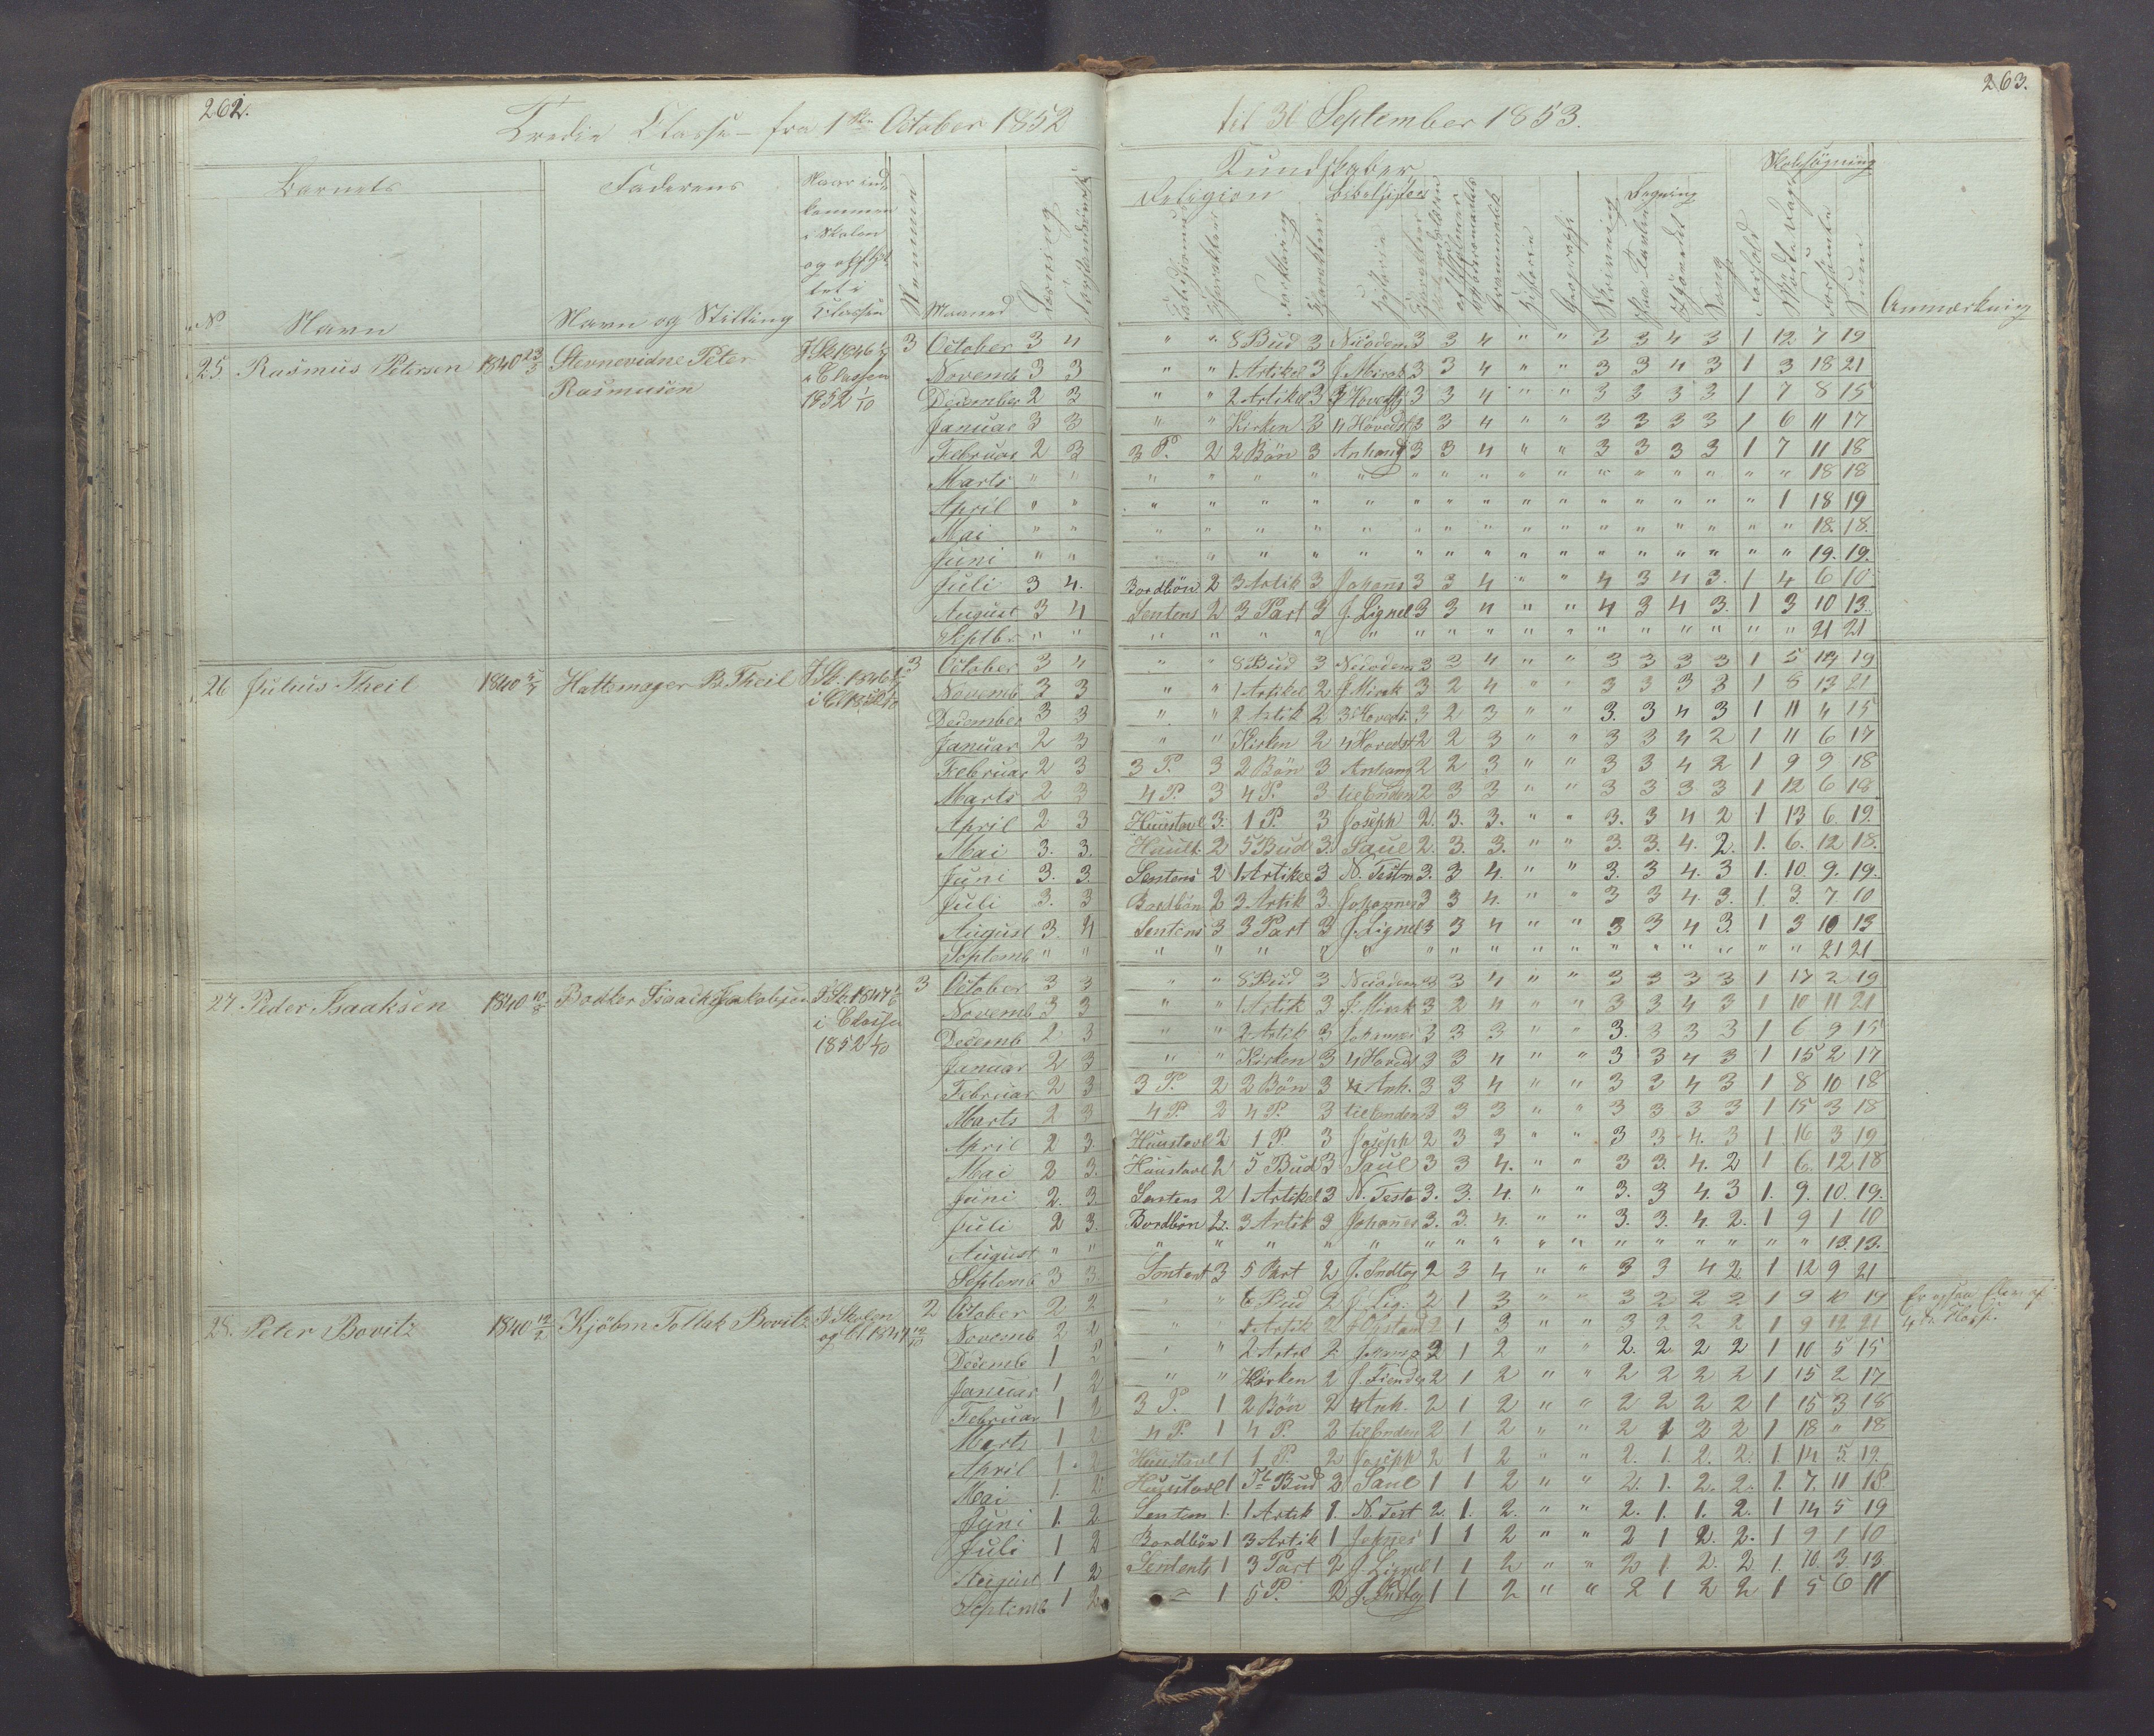 262.
263.
Tredie Classe - fra 1ste October 1852 til 30 September 1853.
Barnets Faderens Kundskaber Skolesøgning
Religion Bibelhistorie Regning
No Navn Navn og Stilling Maaned Læsning Historie Geographi Skrivning Sang Forhold Mødte Dage Forsømte Sum Anmærkning
25 Rasmus Petersen 1840 23/5 Stevnevidne Peter I Sk 1846 3 October 3 4 " " 8 Bud 3 Nicodem 3 3 4 " " 3 3 4 3 1 12 7 19
Rasmusen i Classen Novemb 3 3 " " 1 Artikel 3 J. Mirak 3 3 4 " " 3 3 4 3 1 3 18 21
1852 1/10 December 2 3 " " 2 Artikel 3 3 Hovedst 3 3 4 " " 3 3 3 3 1 7 8 15
Januar 3 3 " " Kirken 3 4 Hovedst 3 3 4 " " 3 3 3 3 1 6 11 17
Februar 2 3 3 P. 2 2 Bön 3 Anhang 3 3 4 " " 3 3 3 3 1 7 11 18
Marts " " " " " " " " " " " " " " " " " " 18 18
April " " " " " " " " " " " " " " " " " 1 18 19
Mai " " " " " " " " " " " " " " " " " " 18. 18.
Juni " " " " " " " " " " " " " " " " " " 19. 19.
Juli 3 4. Bordbön 2 3 Artik 3 Johans 3 3 4 " " 4 3 4 3. 1 4 6 10
August 3 4 Sentens 2 3 Part 3 J. Lignel 3 3 4 " " 4 3 4 3. 1 3 10 13.
Septbr " " " " " " " " " " " " " " " " " " 21 21
26 Julius Theil 1840 5/7 Hattemager B. Theil I Sk. 1846 3 October 3 4 " " 8 Bud 3 Nicodem 3 3 4 " " 3 3 3 3 1 5 14 19
i Cl 1852 1/10 Novemb 3 3 " " 1 Artikel 2 J Mirak 3 2 4 " " 3 3 3 3 1 8 13 21
December 3 3 " " 2 Artik 2 3 Hoveds. 3 2 3 " " 3. 3 4 3 1 11 4 15
Januar 2 3 " " Kirken 2 4 Hovedst 2 2 3 " " 3 3 4 2 1 11 6 17
Februar 2 3 3 P. 3 2 Bön 3 Anhang 2 2 3 " " 3 3 4 2 1 9 9 18
Marts 2 3 4 P. 3 4 P. 3 til Enden 2 3 3 " " 3 3 3 3 1 12 6 18
April 2 3 Huustavl 3. 1 P. 3 Joseph 2. 3. 3. " " 3. 3 4 2 1 13 6. 19.
Mai 3. 3. Huult. 2 5 Bud 3. Saul 2. 3. 3. " " 3. 3. 4. 2. 1. 6. 12 18.
Juni 3. 3. Sentens 2 1 Artikel 3 N. Testm 3. 3 4. " " 3. 3 4. 3 1. 10. 9. 19.
Juli 3. 3 Bordbön 2 3 Artik 3 Johannes 3 3 4. " " 3 3 4. 3. 1. 3. 7 10
August 3. 4 Sentens 3 3 Part 3 J. Lignel 3 3 4 " " 3 3 4 3. 1 3 10 13
Septemb " " " " " " " " " " " " " " " " " " 21 21
27 Peder Isaaksen 1840 10/8 Bödker Isaach Jakobsen I Sk. 1847 3 October 3 3 " " 8 Bud 3 Nicodem 3 3 4 " " 3 3 3 3 1 17 2 19
i Classen Novemb 3 3 " " 1 Artik 3 J. Mirak 3 2 4 " " 3 3 4 3 1 10 11 21
1852 1/10 Decemb 2 3 " " 2 Artik 3 Johannes 3 3 3 " " 3. 3 3 3 1 6 9 15
Januar 2 3 " " Kirken 3 4 Hovedst 3 3 4 " " 3 3 4 3 1 15 2 17
Februar 2 3 3 P. 2 2 Bön 3 4 Anh. 3 3 4 " " 3 3 4 3 1 8 10 18
Marts 2 3 4 P. 2 4 P. 3 til Enden 3 3 3 " " 3 3 3 3 1 15 3 18
April 2 3. Huustavl 2 1 P. 3 Joseph 2 3 3 " " 3 3 4. 3 1 16 3 19
Mai 2 3. Huustavl 2 5 Bud 3 Saul 3 3 4. " " 3 3. 4. 2 1 6. 12 18
Juni 2. 3 Sentens 2 1 Artikel 3 N. Testa 3. 3. 4. " " 3. 3 4. 3 1. 9. 10. 19.
Juli 2 3. Bordbön 2. 3 Artik 3 Johanes 3. 3. 4. " " 3. 3. 4. 2. 1 9 1 10
August " " " " " " " " " " " " " " " " " " 13. 13.
Septemb 3 3 Sentent 3 5 Part 2 J. Indtog 2 3 4 " " 3 3 4 2 1 12 9 21
28. Peter Bovitz 1840 12/2 Kjöbm Tollak Bovitz I Skolen 2 October 2 2 " " 6 Bud 2 J. Lig. 2 1 3 " " 3 2 2 2 1 9 10 19 Er ogsaa Elev af
og Cl 1847 12/10 Novemb 2 2 " " 1 Artik 2 J Opstand 2 1 3 " " 3 2 2 2 1 9 12 21 4de Classe
Decemb 1 2 " " 2 Artel 2 2 1 2 " " 2. 2 2 2 1 10 5 15
Januar 1 2 " " Kirken 2 J. Fiender 2 1 2 " " 2 2 2 2 1 15 2 17
Februar 1 2 3 P. 1 2 Bön 2 4 Anh. 2 1 2 " " 2 2 2 2 1 15 3 18
Marts 1 2 4 P. 1 4 P. 2 til Enden 2 1 2 " " 2 1 2 2 1 18 " 18
April 1. 2 Huustavl 1 1 P. 2 Joseph 2 1 2 " " 2. 1. 2. 2. 1. 14 5. 19.
Mai 1. 2. Huustavl 1 5te Bud 2 Saul 1 1 2 " " 2. 1. 2. 2. 1. 7. 11 18
Juni 1. 2 Sentens 1. 1 Artik 1. N. Test 2. 1. 2. " " 2. 1. 1. 2. 1 14 5 19
Juli 1 2 Bordbön 1 3 Artik 1 Johnes 1 1 2 " " 2 1 2. 2. 1 9 1 10
August 1 2 Sentents 1 3 Part 2 J Lignel 1 1 2 " " 2 1. 2. 2 1. 10. 3. 13
Septemb 1 2 1 5 P. 2 J. Indtog 1 1 2 " " 2 1 2 2 1 5 6 11